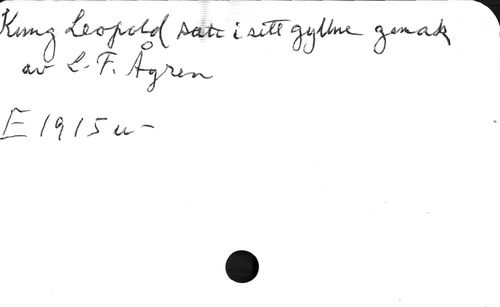 Kung Leopold satt i sitt gyllne gemak
av L. F. Ågren
E 1915 u-